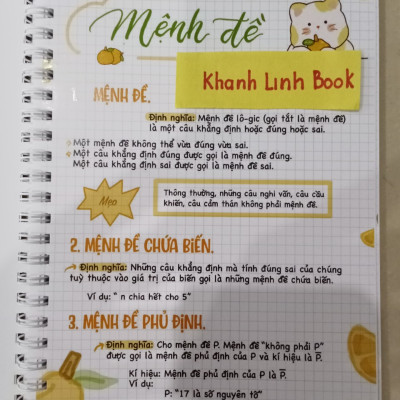 Mệnh đề
Khanh Linh Book
1 MỆNH ĐỀ.
Định nghĩa: Mệnh đề lô-gic (gọi tắt là mệnh đề)
là một câu khẳng định hoặc đúng hoặc sai.
Một mệnh đề không thể vừa đúng vừa sai.
Một câu khẳng định đúng được gọi là mệnh đề đúng.
Một câu khẳng định sai được gọi là mệnh đề sai.
Mẹo
Thông thường, những câu nghi vấn, câu cầu
khiến, câu cảm thán không phải mệnh đề.
2. MỆNH ĐỀ CHỨA BIẾN.
Định nghĩa: Những câu khẳng định mà tính đúng sai của chúng
tuỳ thuộc vào giá trị của biến gọi là những mệnh đề chứa biến.
Ví dụ: " n chia hết cho 5"
3. MỆNH ĐỀ PHỦ ĐỊNH.
Định nghĩa: Cho mệnh đề P. Mệnh đề "không phải P"
được gọi là mệnh đề phủ định của P và kí hiệu là P̅.
Kí hiệu: Mệnh đề phủ định của P là P̅.
Ví dụ:
P: "17 là số nguyên tố"